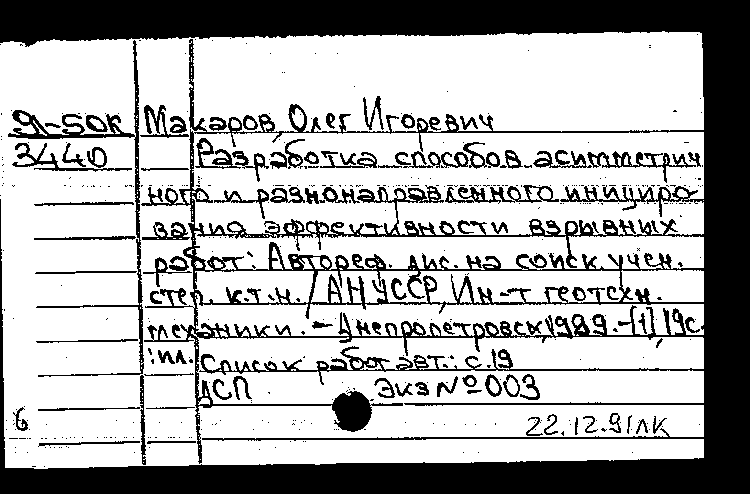 91-50К Макаров, Олег Игоревич
3440 Разработка способов асимметрич
ного и разнонаправленного иницииро-
вания эффективности взрывных
работ: Автореф. дис. на соиск. учен.
степ. к.т.н. / АН УССР, Ин-т геотехн.
механики. - Днепропетровск, 1989. - [1], 19с.
: ил. Список работ авт.: с.19
ДСП Экз № 003
6 22.12.91 ЛК